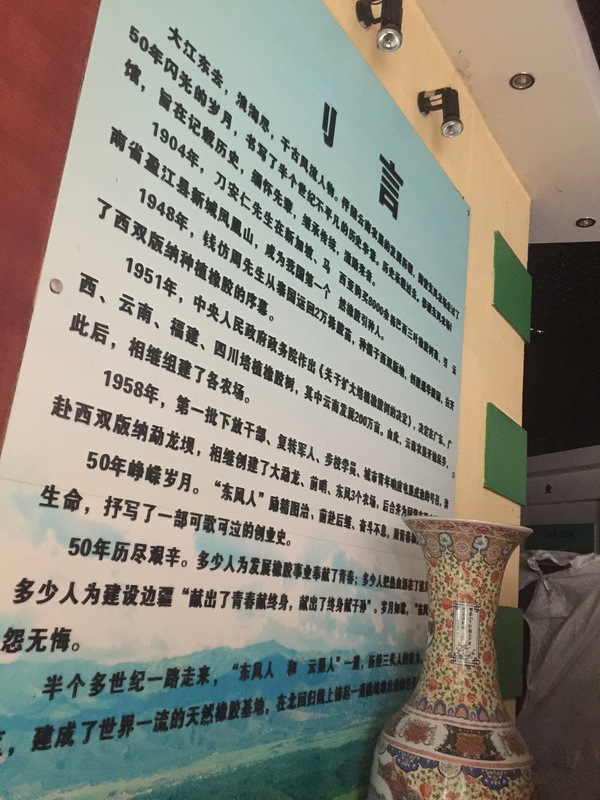 言
大江东去，浪淘尽，千古风流人物。
50年闪光的岁月，书写了半个世纪不平凡的历史
馆，旨在记载历史，缅怀先辈，继承传统，
1904年，刀安仁先生在新加坡、马 西亚购买8000余
南省盈江县新城凤凰山，成为我国第一个 植橡胶引种人。
1948年，钱仿周先生从泰国运回2万株胶苗，种植于西双版纳，
了西双版纳种植橡胶的序幕。
1951年，中央人民政府政务院作出《关于扩大培植橡胶树的决定》，决定在广东、广
西、云南、福建、四川培植橡胶树，其中云南发展200万亩。由此，云南农垦
此后，相继组建了各农场。
1958年，第一批下放干部、复转军人、步校学员、城市青年响应
赴西双版纳勐龙坝，相继创建了大勐龙、前哨、东风3个农场，后合并为
50年峥嵘岁月。“东风人”励精图治，前赴后继，奋斗不息，
生命，抒写了一部可歌可泣的创业史。
50年历尽艰辛。多少人为发展橡胶事业奉献了青春；多少人把热血洒在了
多少人为建设边疆“献出了青春献终身，献出了终身献子孙”。岁月如歌，“东
怨无悔。
半个多世纪一路走来，“东风人 和 云垦人”一道，历经三代人的
建成了世界一流的天然橡胶基地，在北回归线上铸起一道